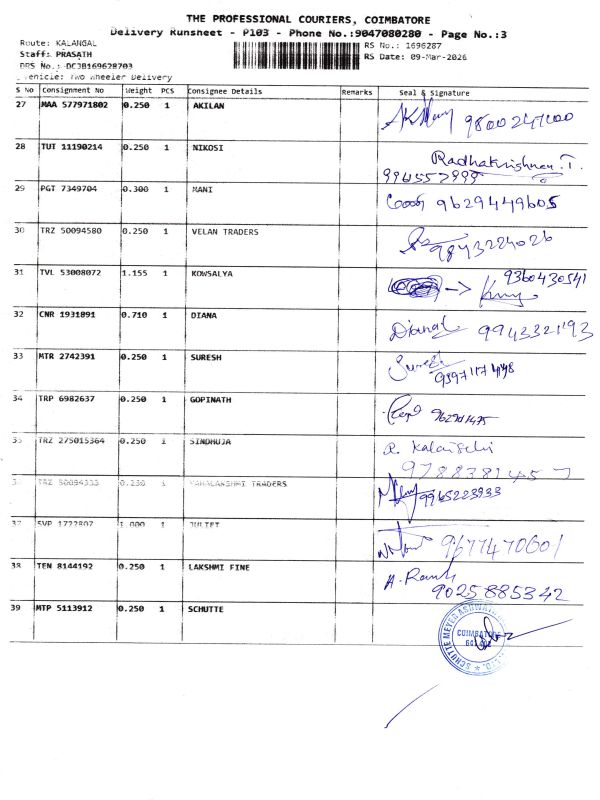 THE PROFESSIONAL COURIERS, COIMBATORE
Delivery Runsheet - P103 - Phone No.:9047080280 - Page No.:3
Route: KALANGAL
RS No.: 1696287
Staff: PRASATH
RS Date: 09-Mar-2026
DRS No.: DCJB169628703
Vehicle: Two Wheeler Delivery
S No Consignment No Weight PCS Consignee Details Remarks Seal & Signature
27 MAA 577971802 0.250 1 AKILAN
28 TUT 11190214 0.250 1 NIKOSI Radhakrishnan.T.
29 PGT 7349704 0.300 1 MANI 9629449605
30 TRZ 50094580 0.250 1 VELAN TRADERS 9843224026
31 TVL 53008072 1.155 1 KOWSALYA 9360430541
32 CNR 1931091 0.710 1 DIANA Diana
33 MTR 2742391 0.250 1 SURESH Suresh
34 TRP 6982637 0.250 1 GOPINATH
35 TRZ 275015364 0.250 1 SINDHUJA
9788381457
36 TRZ 50094333 0.250 1 MAHALAKSHMI TRADERS 9965223933
37 SVP 1722807 1.000 1 JULIET 9677470601
38 TEN 8144192 0.250 1 LAKSHMI FINE
9025885342
39 MTP 5113912 0.250 1 SCHUTTE
COIMBATORE